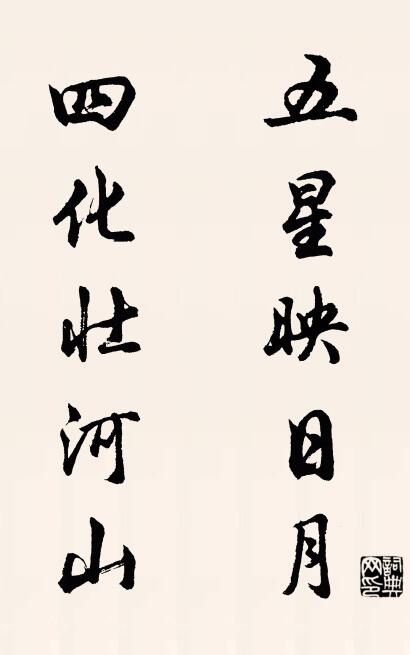 五星映日月
四化壮河山
詞典
网印